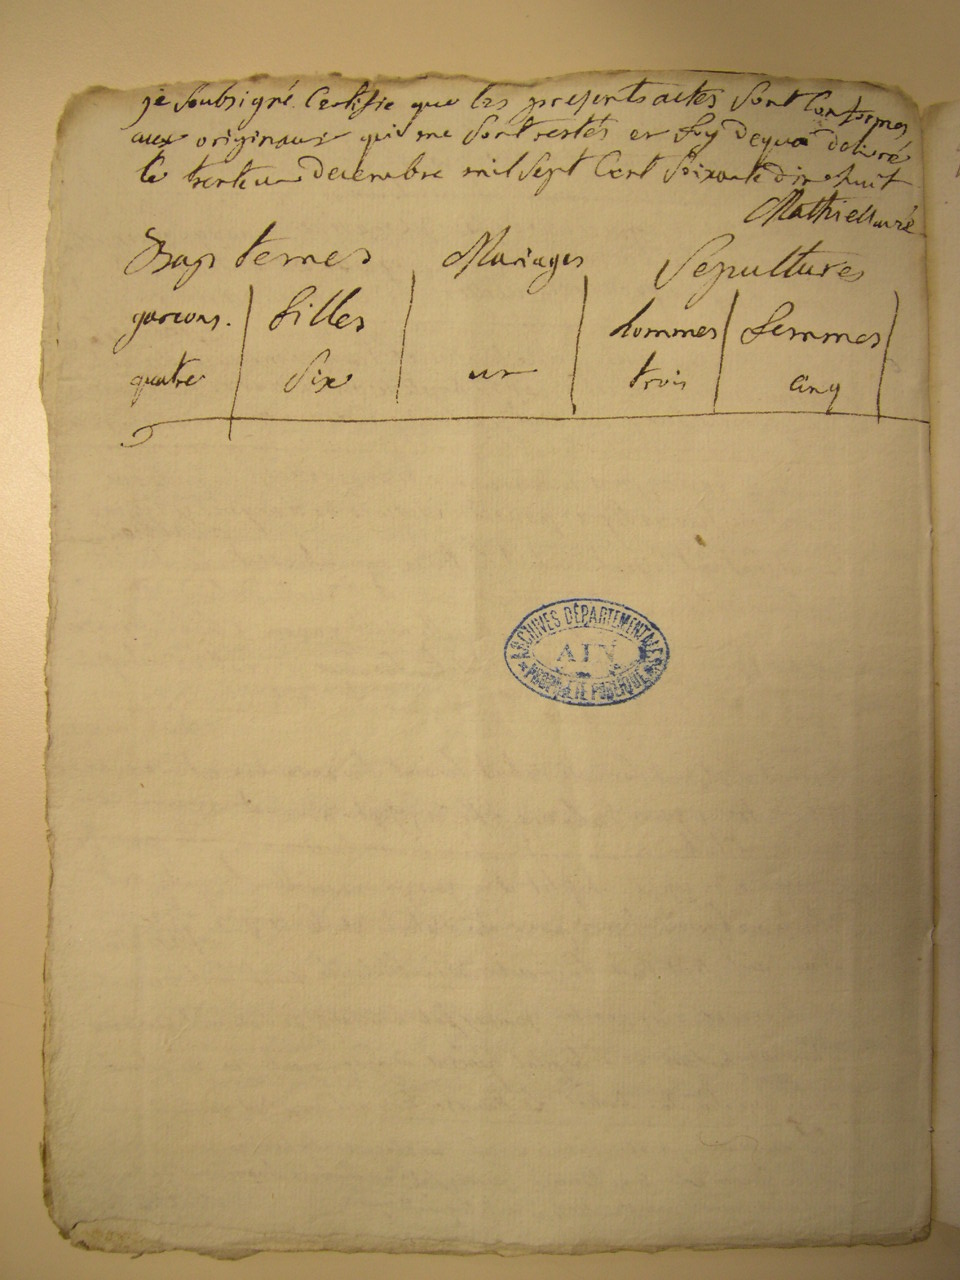 je soubsigné Certifie que les presents actes sont Conformes
aux originaux qui me sont restés en foy dequoi délivré
le trente un Decembre mil Sept Cent Soixante dix huit
Mathieu curé
Baptemes Mariages Sépultures
garcons. filles hommes femmes
quatre six un trois cinq
ARCHIVES DÉPARTEMENTALES
AIN
PROPRIÉTÉ PUBLIQUE